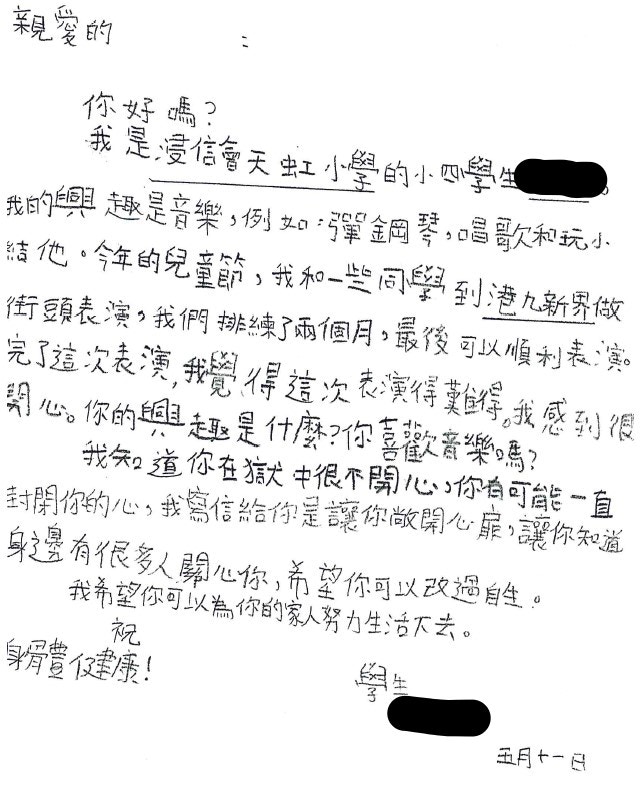 親愛的　　　：
你好嗎？
我是浸信會天虹小學的小四學生　　。
我的興趣是音樂，例如：彈鋼琴，唱歌和玩小
結他。今年的兒童節，我和一些同學到港九新界做
街頭表演，我們排練了兩個月，最後可以順利表演。
完了這次表演，我覺得這次表演得難得。我感到很
開心。你的興趣是什麼？你喜歡音樂嗎？
我知道你在獄中很不開心，你有可能一直
封閉你的心，我寫信給你是讓你敞開心扉，讓你知道
身邊有很多人關心你，希望你可以改過自生。
我希望你可以為你的家人努力生活下去。
祝
身體健康！
學生
五月十一日